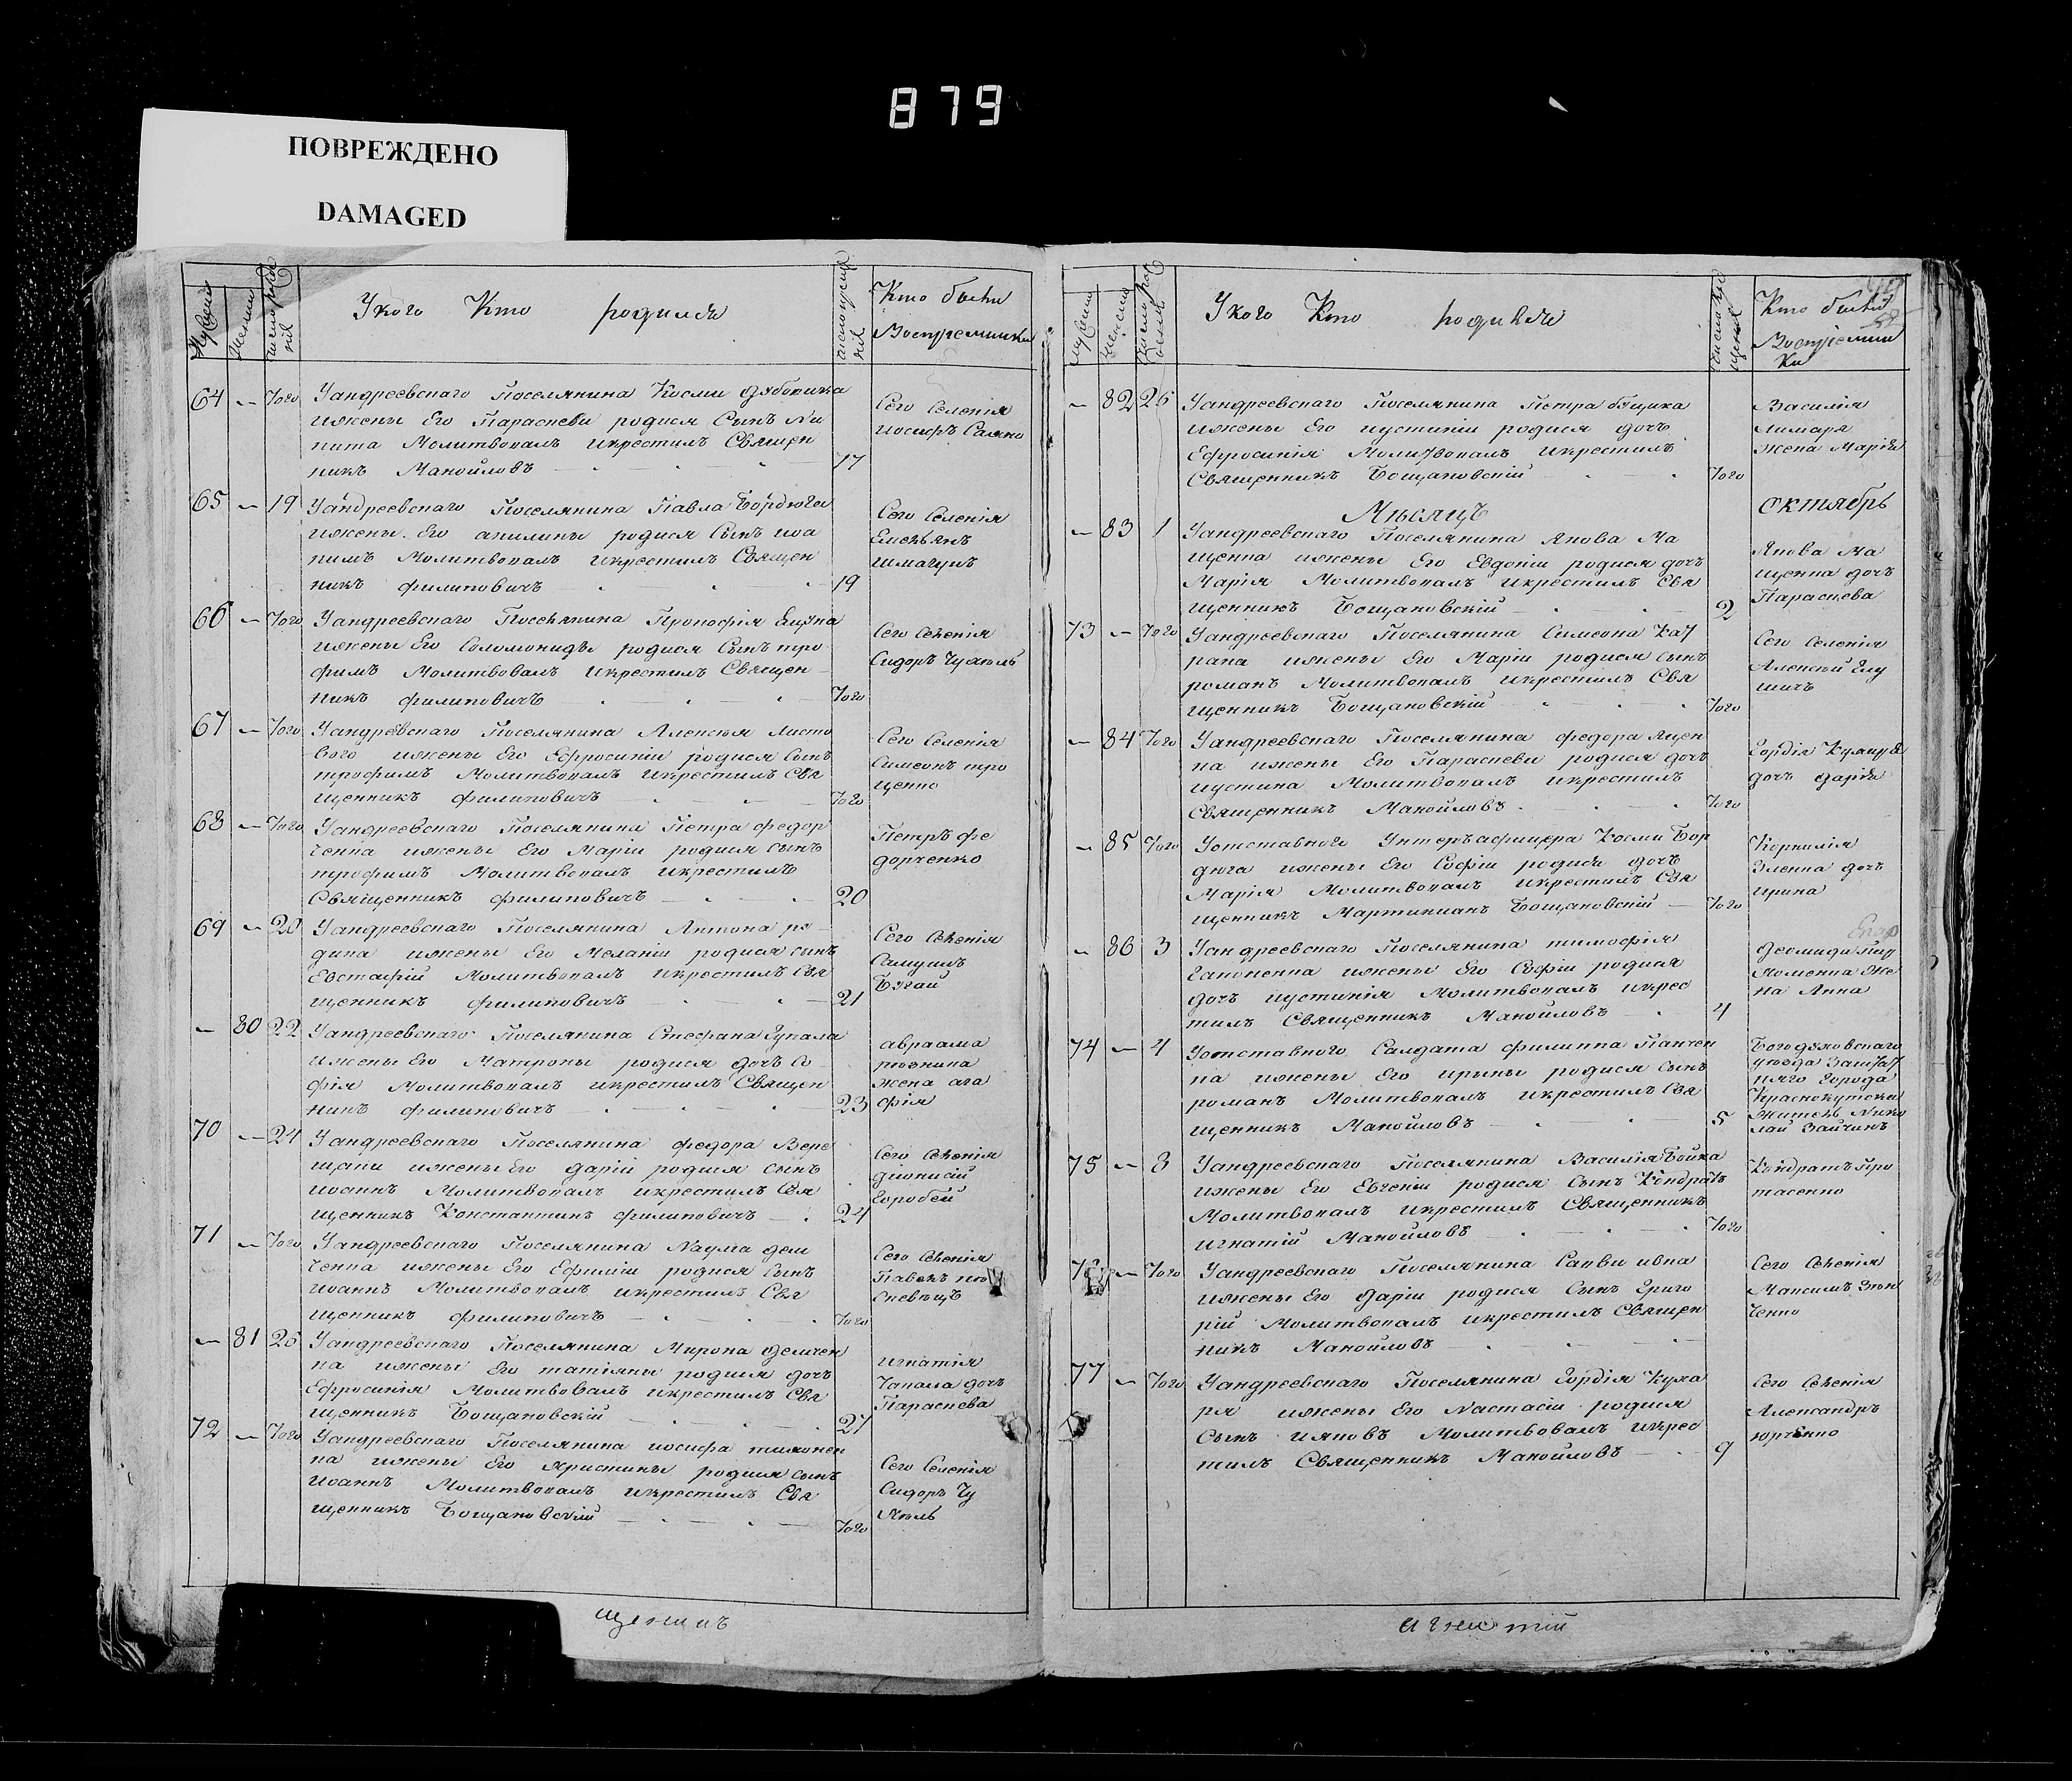 879
ПОВРЕЖДЕНО
DAMAGED
Укого Кто родился
Кто были
Восприемники
64 — Того Уандреевскаго Поселянина Косми
ижены Его Параскеви родися Сынъ Ни
кита Молитвовалъ икрестилъ Священ
никъ Манойловъ 17
Сего Селенія
иосифъ
65 — 19 Уандреевскаго Поселянина Павла Бордюги
ижены Его акилины родися Сынъ иоа
кимъ Молитвовалъ икрестилъ Священ
никъ филиповичъ 19
Сего Селенія
Емельянъ
шмагунъ
66 — Того Уандреевскаго Поселянина Прокофія
ижены Его Соломониды родися Сынъ тро
фимъ Молитвовалъ икрестилъ Священ
никъ филиповичъ Того
Сего Селенія
Сидоръ
67 — Того Уандреевскаго Поселянина Алексея Листо
вого ижены Его Ефросиніи родися Сынъ
трофимъ Молитвовалъ икрестилъ Свя
щенникъ филиповичъ Того
Сего Селенія
Симеонъ тро
ценко
68 — Того Уандреевскаго Поселянина Петра федор
ченка ижены Его Маріи родися Сынъ
трофимъ Молитвовалъ икрестилъ
Священникъ филиповичъ 20
Петръ фе
дорченко
69 — 20 Уандреевскаго Поселянина Антона ро
дина ижены Его Меланіи родися сынъ
Евстафій Молитвовалъ икрестилъ Свя
щенникъ филиповичъ 21
Сего Селенія
Самуилъ
Бугай
— 80 22 Уандреевскаго Поселянина Стефана Чупала
ижены Его Матроны родися дочь Со
фія Молитвовалъ икрестилъ Священ
никъ филиповичъ 23
авраама
жена ага
фія
70 — 24 Уандреевскаго Поселянина федора Вере
щаки ижены Его дарій родися сынъ
иоаннъ Молитвовалъ икрестилъ Свя
щенникъ Константинъ филиповичъ 24
Сего Селенія
діонисій
Горобей
71 — Того Уандреевскаго Поселянина Наума дем
ченка ижены Его Ефиміи родися Сынъ
иоаннъ Молитвовалъ икрестилъ Свя
щенникъ филиповичъ Того
Сего Селенія
Павелъ
— 81 25 Уандреевскаго Поселянина Мирона демчен
ка ижены Его татіяны родися дочь
Ефросинія Молитвовалъ икрестилъ Свя
щенникъ Бощановскій 27
игнатія
Чапала дочь
Параскева
72 — Того Уандреевскаго Поселянина иосифа тимонен
ка ижены Его христины родися сынъ
иоаннъ Молитвовалъ икрестилъ Свя
щенникъ Бощановскій Того
Сего Селенія
Сидоръ
щенникъ
Укого Кто родился
Кто были
Восприемни
ки
— 82 26 Уандреевскаго Поселянина Петра
ижены Его иустиніи родися дочь
Ефросинія Молитвовалъ икрестилъ
Священникъ Бощановскій Того
Василія
Лимаря
жена Марія
Мѣсяцъ октябрь
— 83 1 Уандреевскаго Поселянина Якова Ма
щенка ижены Его Евдокіи родися дочь
Марія Молитвовалъ икрестилъ Свя
щенникъ Бощановскій 2
Якова Ма
щенка дочь
Параскева
73 — Того Уандреевскаго Поселянина Симеона
ижены Его Маріи родися сынъ
романъ Молитвовалъ икрестилъ Свя
щенникъ Бощановскій Того
Сего Селенія
Алексей
— 84 Того Уандреевскаго Поселянина федора яцен
ка ижены Его Параскеви родися дочь
иустина Молитвовалъ икрестилъ
Священникъ Манойловъ Того
Гордія
дочь дарія
— 85 Того Уотставного Унтеръафицера Косми Бор
дюга ижены Его Софіи родися дочь
Марія Молитвовалъ икрестилъ Свя
щенникъ Мартиніанъ Бощановскій Того
Корнилія
дочь
ирина
— 86 3 Уандреевскаго Поселянина тимофія
Гапоненка ижены Его Софіи родися
дочь иустинія Молитвовалъ икрес
тилъ Священникъ Манойловъ 4
Же
на Анна
74 — 4 Уотставного Салдата филиппа Панчен
ка ижены Его ирины родися Сынъ
романъ Молитвовалъ икрестилъ Свя
щенникъ Манойловъ 5
Богодуховскаго
уѣзда Заштат
наго Города
Краснокутска
житель Нико
лай Зайчикъ
75 — 8 Уандреевскаго Поселянина Василія Бойка
ижены Его Евгеніи родися Сынъ Кондратъ
Молитвовалъ икрестилъ Священникъ
игнатій Манойловъ Того
Кондратъ Про
тасенко
76 — Того Уандреевскаго Поселянина Савви ивна
ижены Его дарій родися Сынъ Григо
рій Молитвовалъ икрестилъ Священ
никъ Манойловъ
Сего Селенія
Максимъ Зѣн
ченко
77 — Того Уандреевскаго Поселянина Гордія Куха
ря ижены Его Настасіи родися
Сынъ ияковъ Молитвовалъ икрес
тилъ Священникъ Манойловъ 9
Сего Селенія
Александръ
юрченко